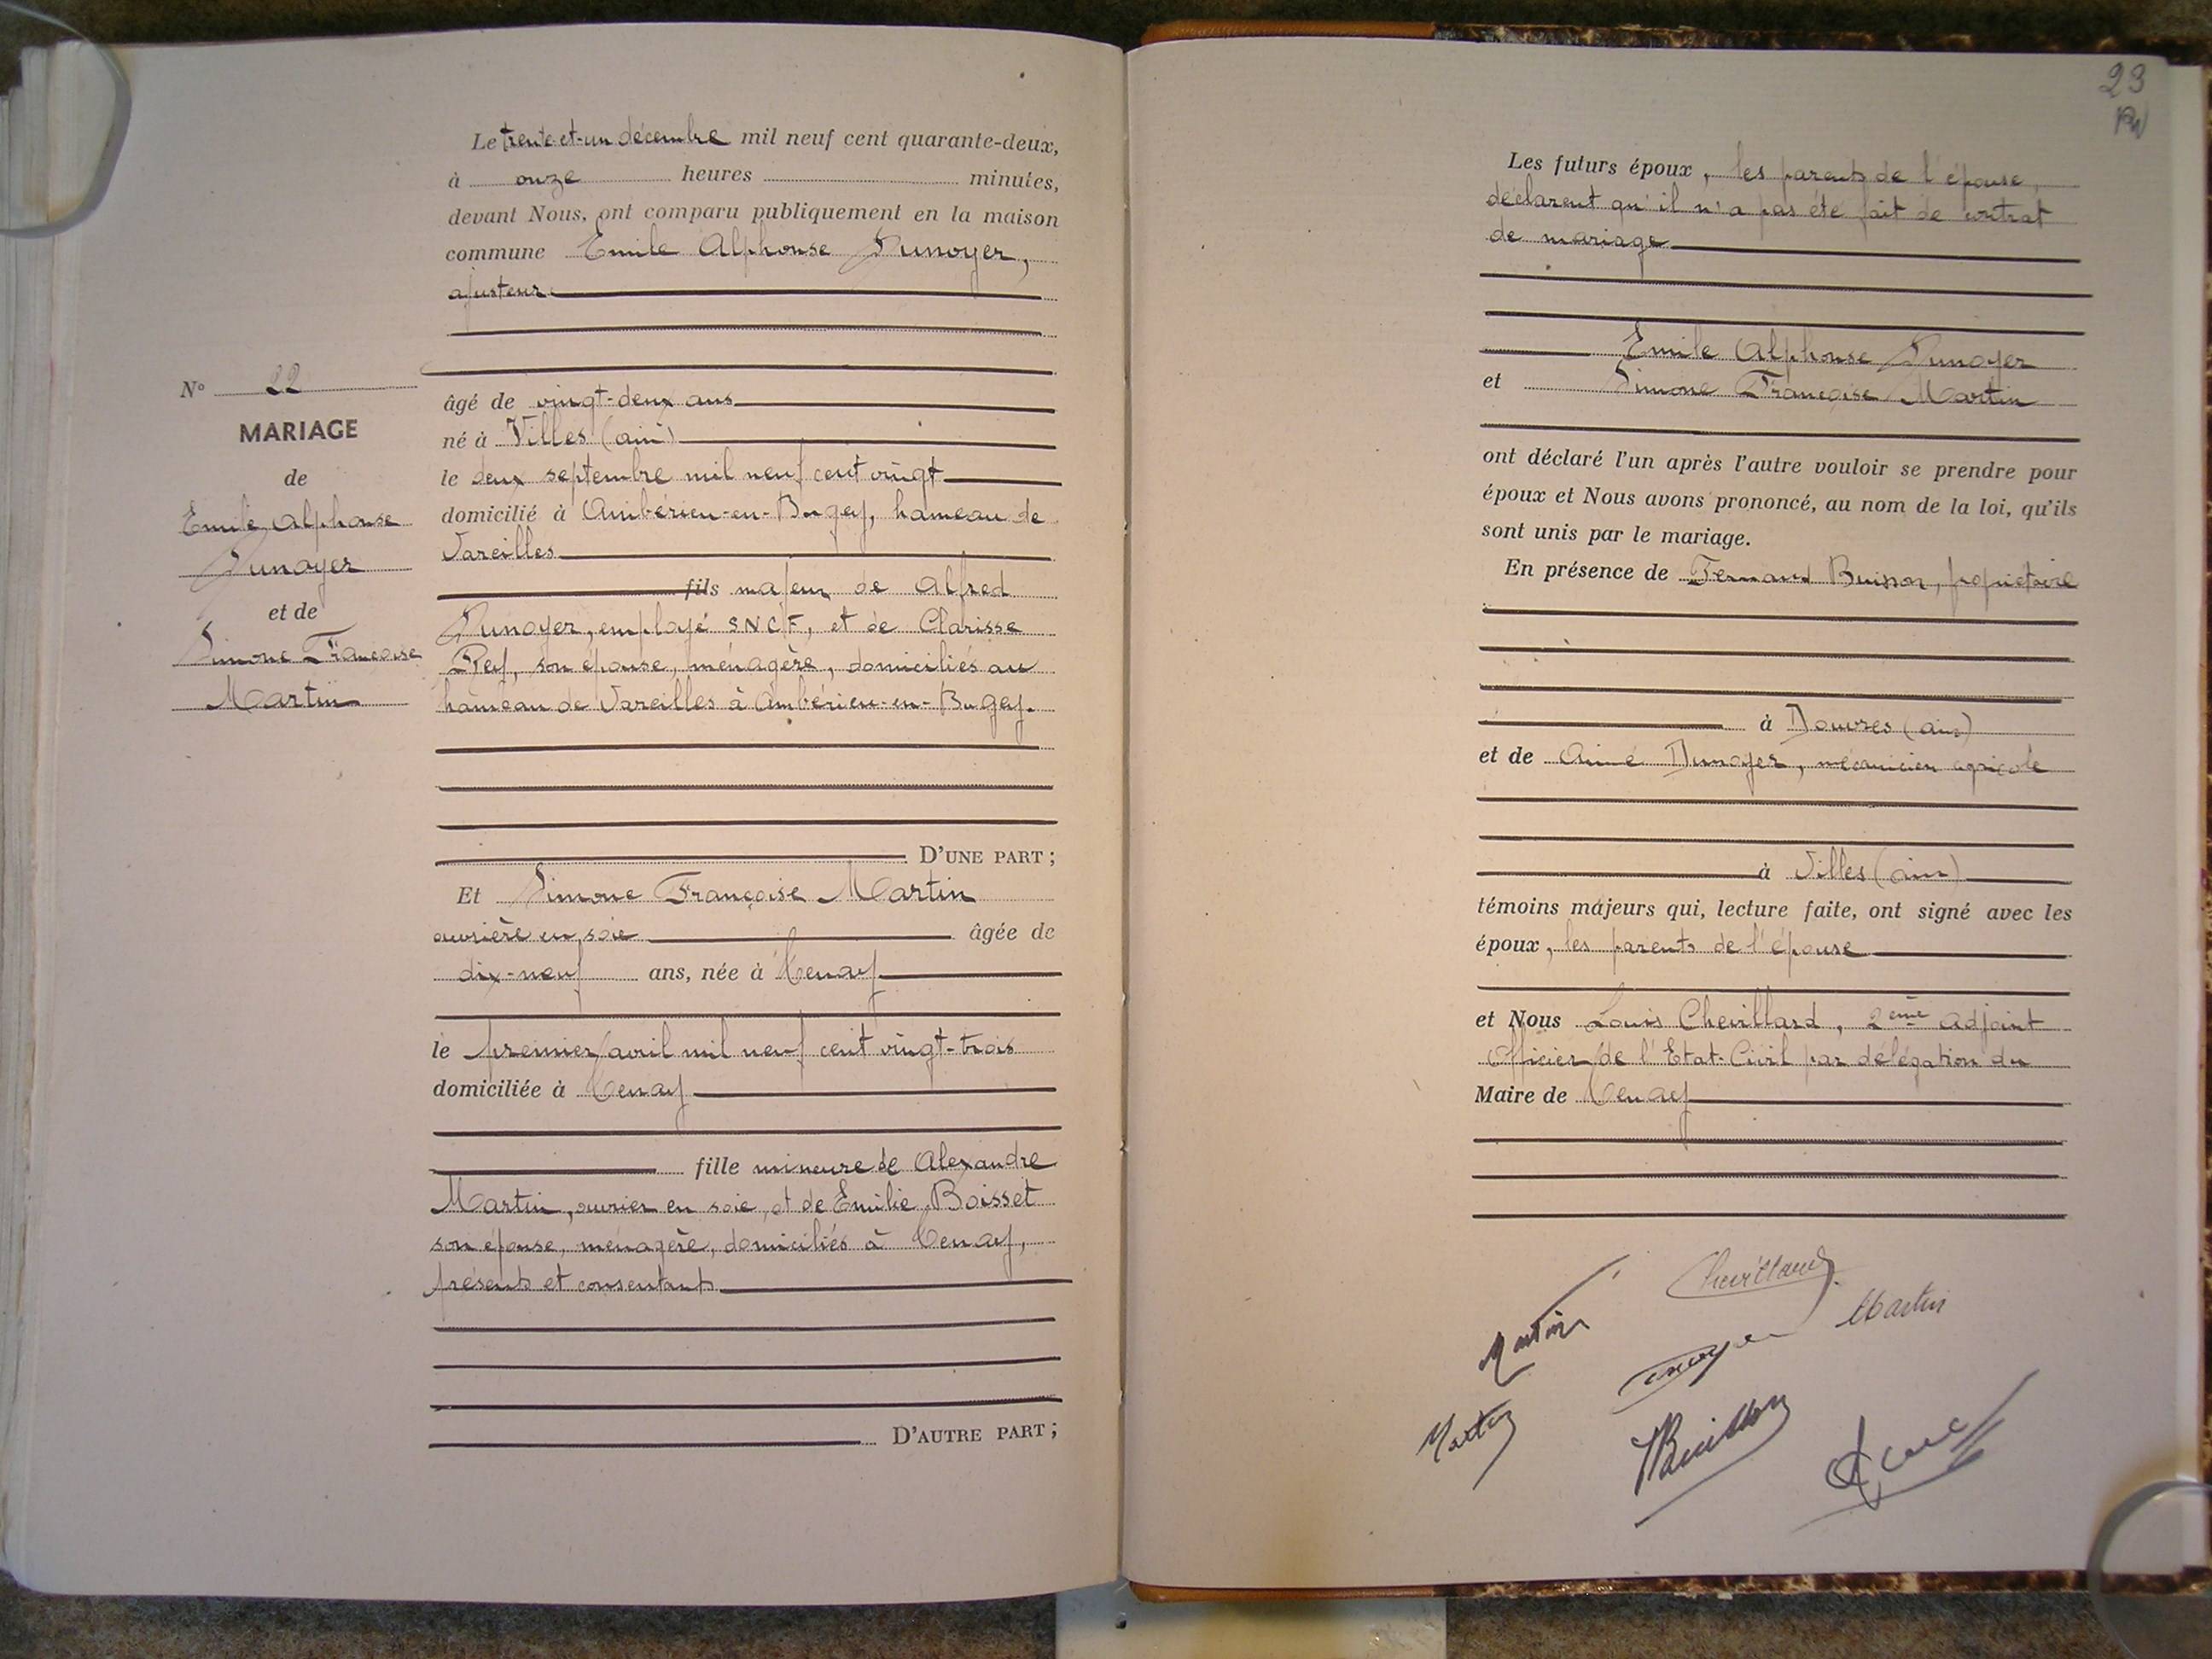 Le trente-et-un décembre mil neuf cent quarante-deux,
à onze heures minutes,
devant Nous, ont comparu publiquement en la maison
commune Emile Alphonse Dunoyer,
ajusteur
N° 22
MARIAGE
de
Emile Alphonse
Dunoyer
et de
Simone Françoise
Martin
âgé de vingt-deux ans
né à Villes (ain)
le deux septembre mil neuf cent vingt
domicilié à Ambérieu-en-Bugey, hameau de
Vareilles
fils majeur de Alfred
Dunoyer, employé SNCF, et de Clarisse
Rey, son épouse, ménagère, domiciliés au
hameau de Vareilles à Ambérieu-en-Bugey.
D'UNE PART ;
Et Simone Françoise Martin
ouvrière en soie âgée de
dix-neuf ans, née à Tenay
le premier avril mil neuf cent vingt-trois
domiciliée à Tenay
fille mineure de Alexandre
Martin, ouvrier en soie, et de Emilie Boisset
son épouse, ménagère, domiciliés à Tenay,
présents et consentants
D'AUTRE PART ;
23
Les futurs époux, les parents de l'épouse,
déclarent qu'il n'a pas été fait de contrat
de mariage
Emile Alphonse Dunoyer
et Simone Françoise Martin
ont déclaré l'un après l'autre vouloir se prendre pour
époux et Nous avons prononcé, au nom de la loi, qu'ils
sont unis par le mariage.
En présence de Fernand Buisson, propriétaire
à Douvres (ain)
et de Aimé Dunoyer, mécanicien agricole
à Villes (ain)
témoins majeurs qui, lecture faite, ont signé avec les
époux, les parents de l'épouse
et Nous Louis Chevillard, 2ème adjoint
Officier de l'Etat-Civil par délégation du
Maire de Tenay
Chevillard
Martin
Martin
Dunoyer
Martin
Buisson